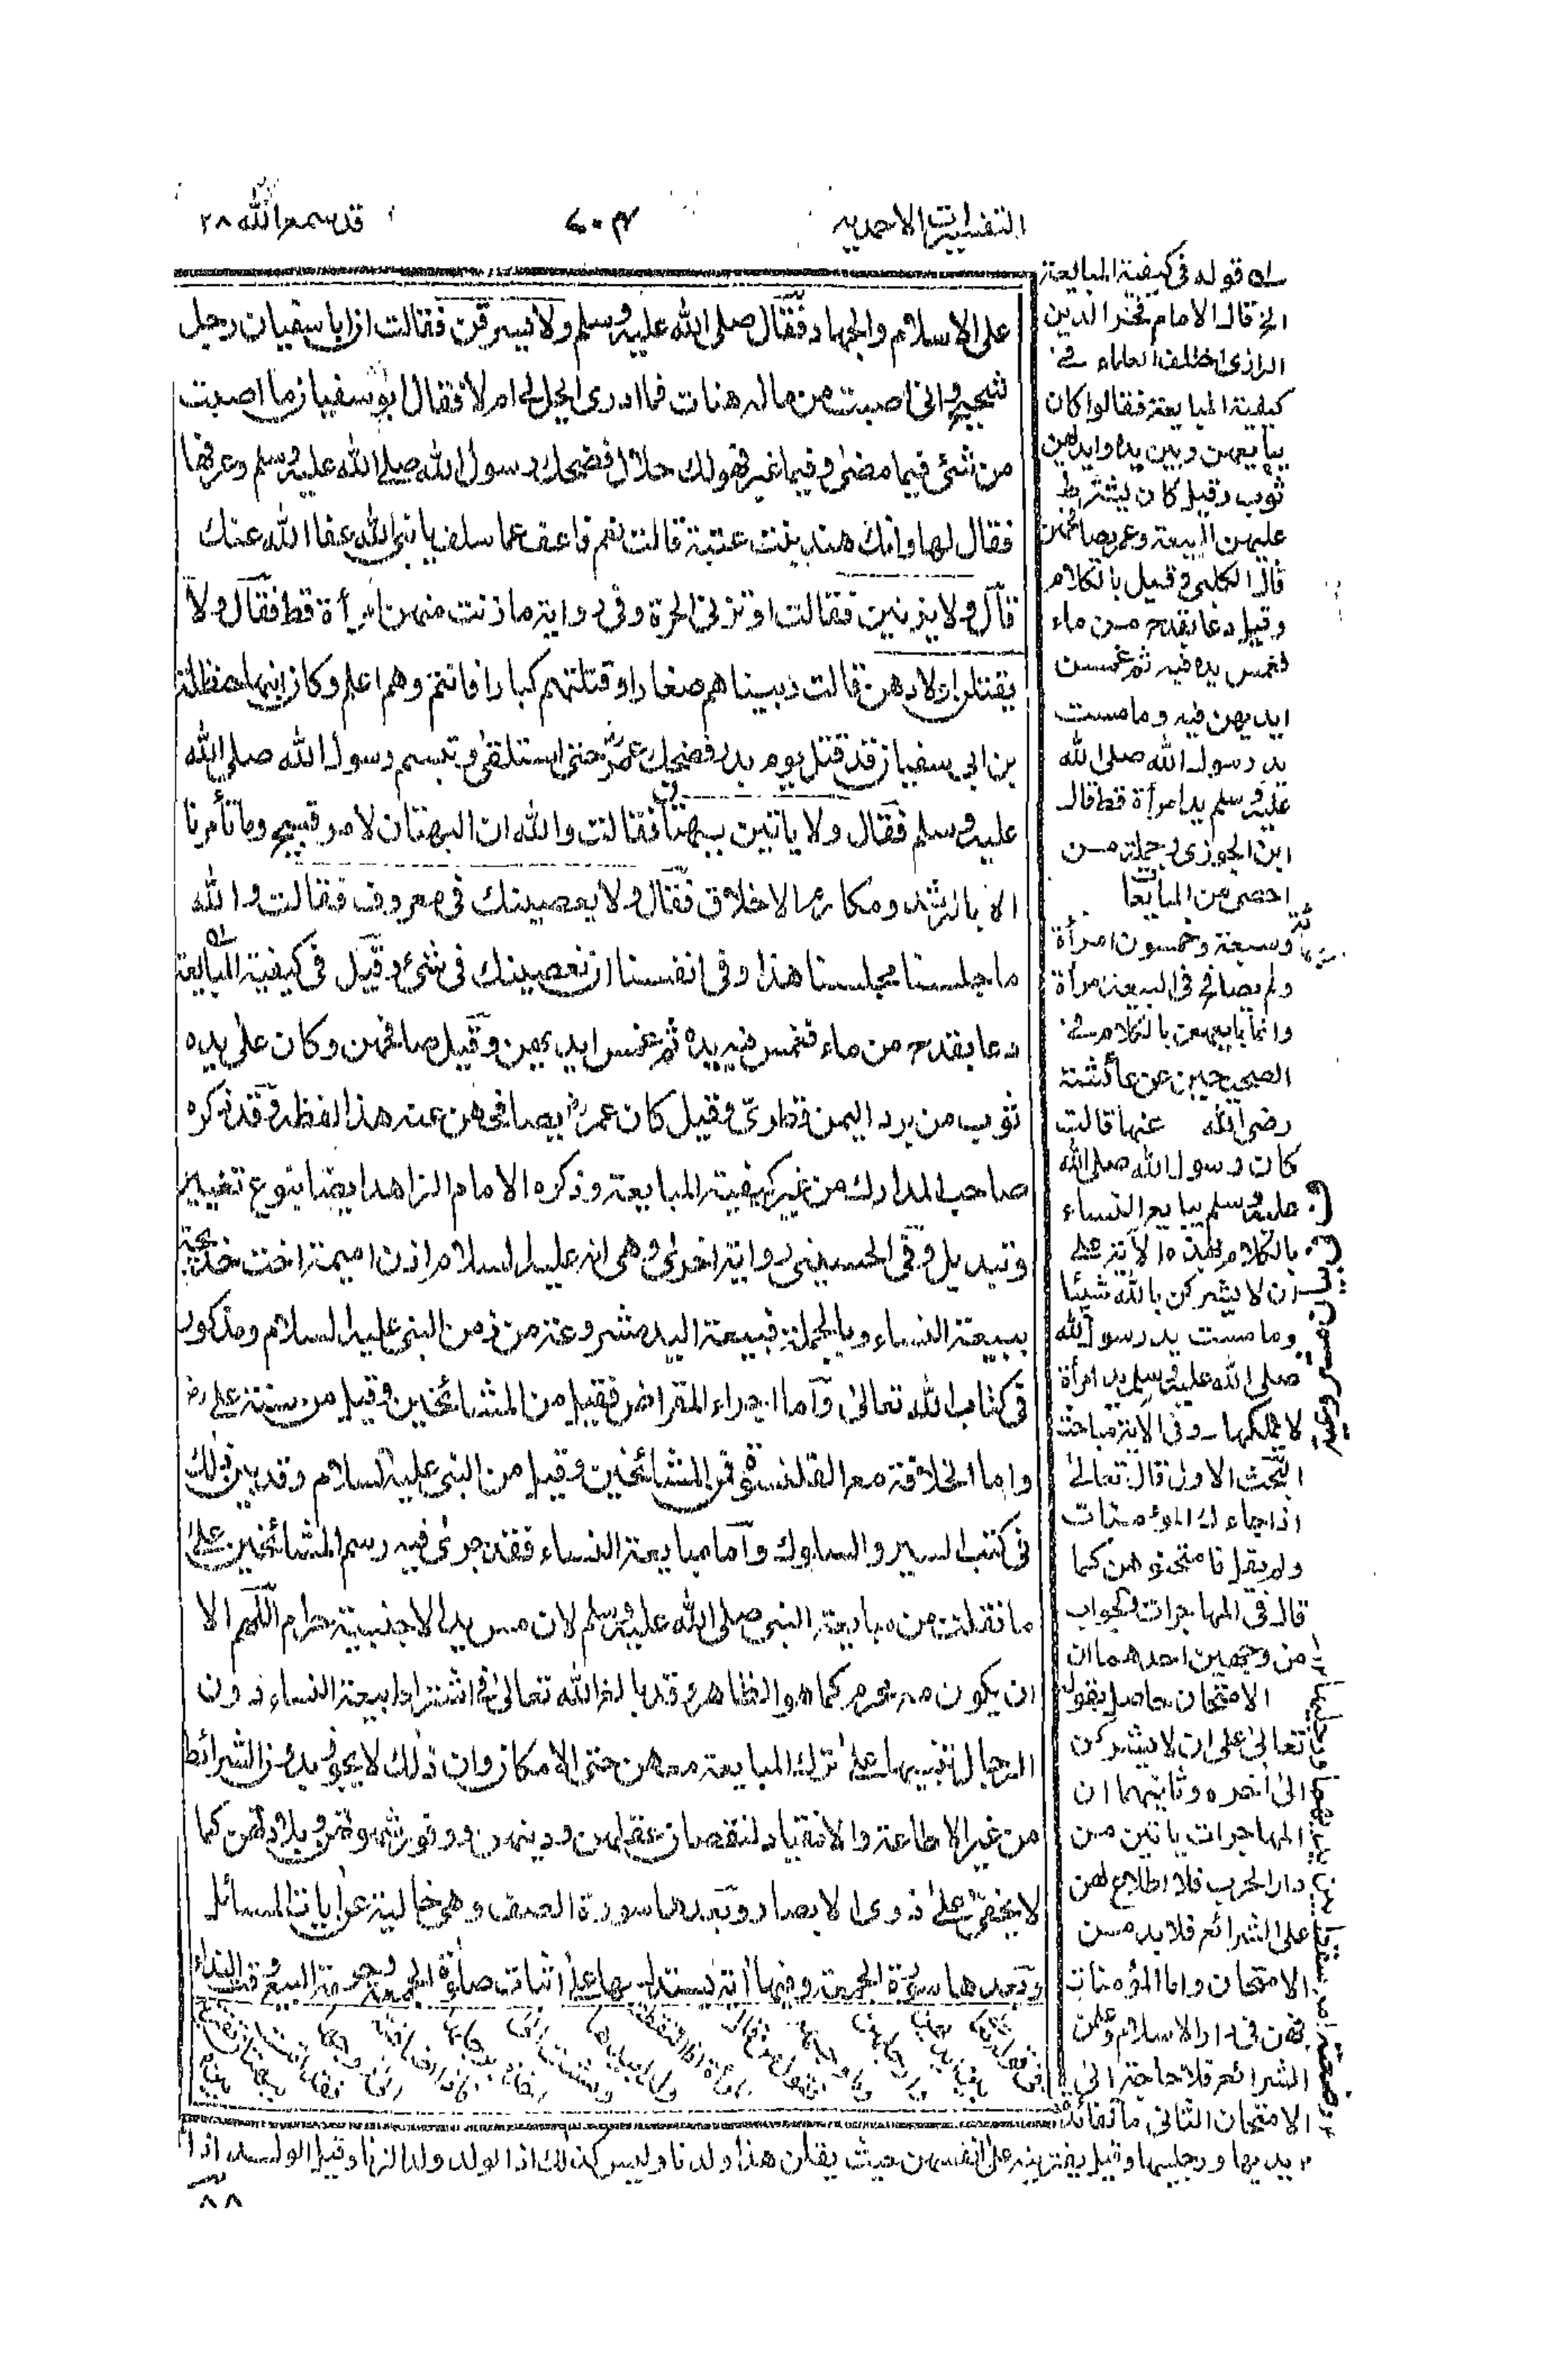 التفسيرات الاحمديه
٧٠٤
قد سمع الله ٢٨
على الاسلام والجهاد فقال صلى الله عليه وسلم ولا يسرقن فقالت ان ابا سفيان رجل
شحيح وانى اصبت من ماله هنات فما ادرى ايحل لى ام لا فقال ابو سفيان ما اصبت
من شئ فيما مضى وفيما غبر فهو لك حلال فضحك رسول الله صلى الله عليه وسلم وعرفها
فقال لها وانك هند بنت عتبة قالت نعم فاعف عما سلف يا نبى الله عفا الله عنك
قال ولا يزنين فقالت او تزنى الحرة وفى رواية ما زنت منهن امرأة قط فقال ولا
يقتلن اولادهن قالت ربيناهم صغارا وقتلتهم كبارا فانتم وهم اعلم وكان ابنها حنظلة
بن ابى سفيان قد قتل يوم بدر فضحك عمر حتى استلقى وتبسم رسول الله صلى الله
عليه وسلم فقال ولا ياتين ببهتان فقالت والله ان البهتان لامر قبيح وما تأمرنا
الا بالرشد ومكارم الاخلاق فقال ولا يعصينك فى معروف فقالت والله
ما جلسنا مجلسنا هذا وفى انفسنا ان نعصينك فى شئ وقيل فى كيفية المبايعة
دعا بقدح من ماء فغمس فيه يده ثم غمس ايديهن وقيل صافحهن وكان على يده
ثوب من برد اليمن قطرى وقيل كان عمر يصافحهن عنه هذا لفظه وقد ذكره
صاحب المدارك من غير كيفية المبايعة وذكره الامام الزاهد ايضا بنوع تغيير
وتبديل وفى الحسينى رواية اخرى وهى انه عليه السلام اذن اميمة اخت خديجة
ببيعة النساء وبالجملة فبيعة اليد مشروعة من زمن النبى عليه السلام ومذكور
فى كتاب الله تعالى واما اجراء المقراض فقيل من المشائخين وقيل من سنة على رض
واما الخلافة مع القلنسوة فمن المشائخين وقيل من النبى عليه السلام وقد بين ذلك
فى كتب السير والسلوك واما مبايعة النساء فقد جرى فيه رسم المشائخين على
ما نقلت من مبايعة النبى صلى الله عليه وسلم لان مس يد الاجنبية حرام اللهم الا
ان يكون محرم كما هو الظاهر وقد بالغ الله تعالى فى اشتراط بيعة النساء دون
الرجال تنبيها على ترك المبايعة معهن حتى الامكان وان ذلك لا يجوز بدون الشرائط
من غير الاطاعة والانقياد لنقصان عقلهن ودينهن ووفور شهوتهن وبلادتهن كما
لا يخفى على ذوى الابصار وبعدها سورة الصف وهى خالية عن ايات المسائل
وبعدها سورة الجمعة وفيها آية يستدل بها على اثبات صلوة الجمعة وحرمة البيع وقت النداء
له قوله فى كيفية المبايعة
الخ قال الامام فخر الدين
الرازى اختلف العلماء فى
كيفية المبايعة فقالوا كان
يبايعهن وبين يده وايديهن
ثوب وقيل كان يشترط
عليهن البيعة وعمر يصافحهن
قال الكلبى وقيل بالكلام
وقيل دعا بقدح من ماء
فغمس يده فيه ثم غمسن
ايديهن فيه وما مست
يد رسول الله صلى الله
عليه وسلم يد امرأة قط قال
ابن الجوزى وجملة من
احصى من المبايعات
اربعمائة وسبعة وخمسون امرأة
ولم يصافح فى البيعة امرأة
وانما بايعهن بالكلام فى
الصحيحين عن عائشة
رضى الله عنها قالت
كان رسول الله صلى الله
عليه وسلم يبايع النساء
بالكلام بهذه الآية على
ان لا يشركن بالله شيئا
وما مست يد رسول الله
صلى الله عليه وسلم يد امرأة
لا يملكها وفى الاية مباحث
البحث الاول قال تعالى
اذا جاءك المؤمنات
ولم يقل فامتحنوهن كما
قال فى المهاجرات والجواب
من وجهين احدهما ان
الامتحان حاصل بقوله
تعالى على ان لا يشركن
الى آخره وثانيهما ان
المهاجرات ياتين من
دار الحرب فلا اطلاع لهن
على الشرائع فلا بد من
الامتحان واما المؤمنات
فهن فى دار الاسلام وعلمن
الشرائع فلا حاجة الى
الامتحان الثانى ما فائدة
يديها ورجليها وقيل يفترينه على انفسهن حيث يقلن هذا ولدنا وليس كذلك اذ الولد ولد الزنا وقيل الولد اذا
٨٨